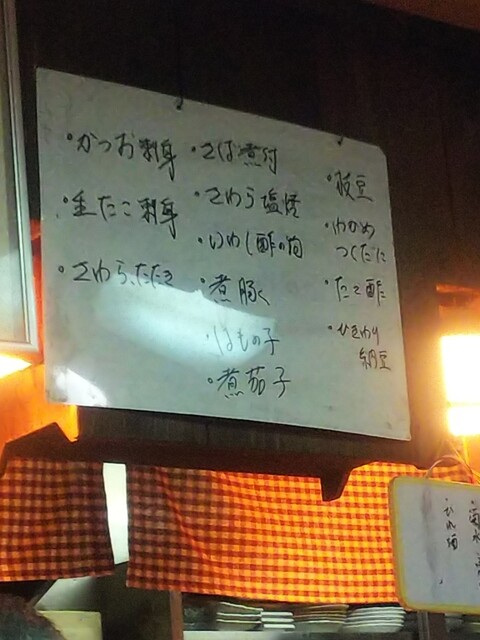 ・かつお刺身
・生たこ刺身
・さわらたたき
・さば煮付
・さわら塩焼
・いわし酢の物
・煮豚く
・はもの子
・煮茄子
・枝豆
・わかめ
つくだに
・たこ酢
・ひきわり
納豆
・ひれ酒